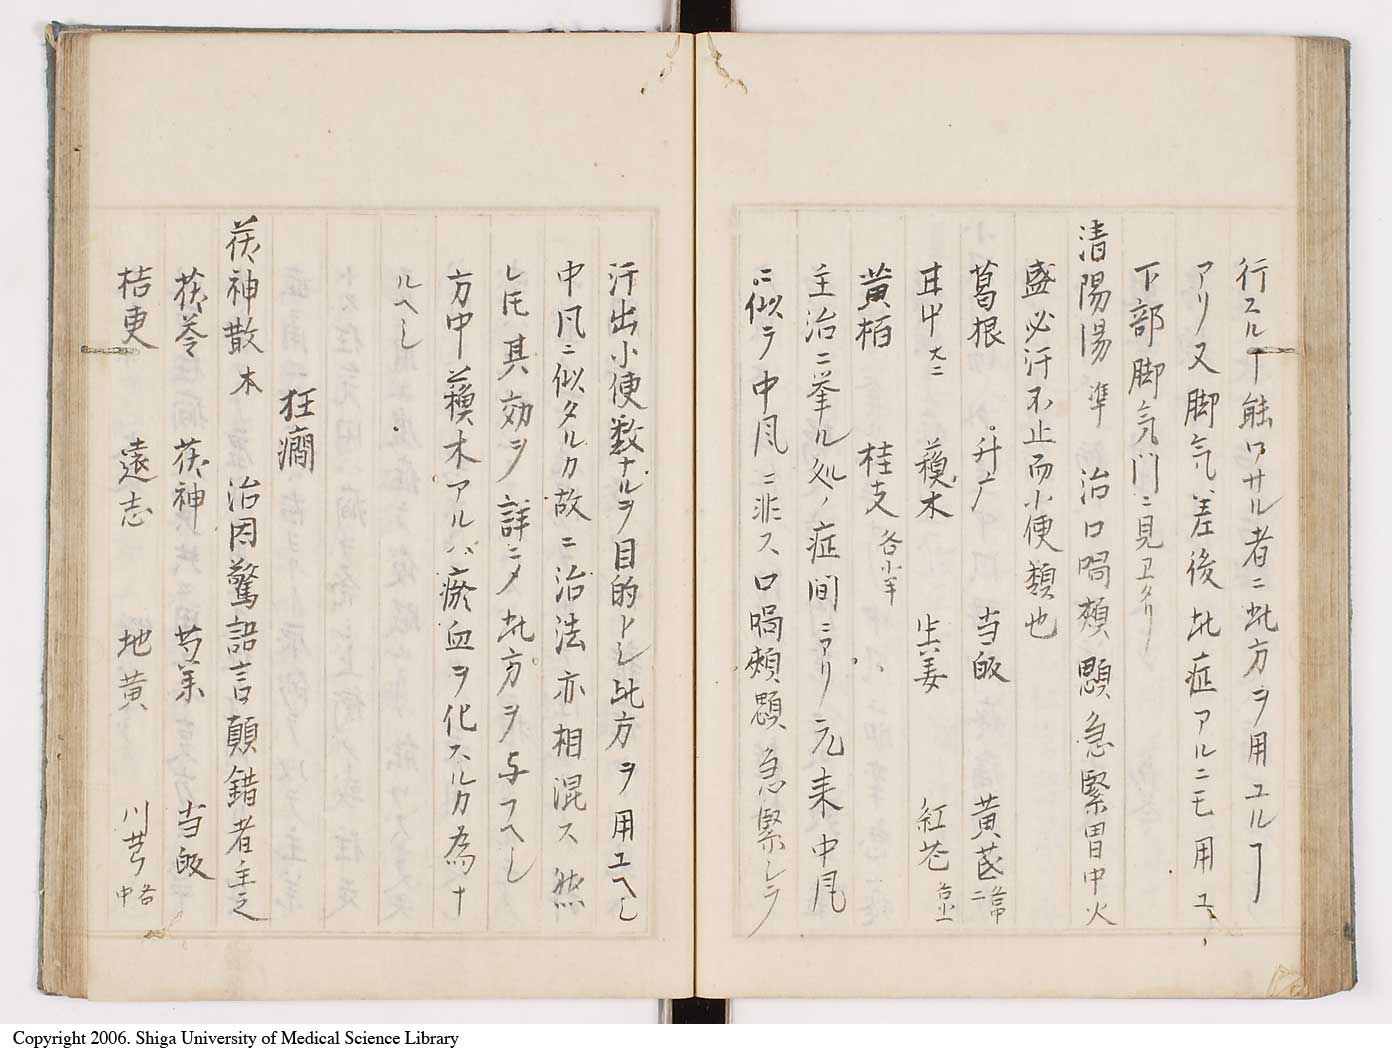 行スルヿ能ワサル者ニ此方ヲ用ユルヿ
アリ又脚気差後此症アルニモ用ユ、
下部脚気門ニ見ヱタリ
清陽湯 準 治口喎頰腮急緊胃中火
盛必汗不止而小便類也
葛根 升广 当皈 黄芪各中二
甘艸大二 蘓木 生姜 紅花各小一
黄栢 桂支各小半
主治ニ挙ル処ノ症間ニアリ元来中風
ニ似テ中風ニ非ス口喎頰腮急緊シテ
汗出小便数ナルヲ目的トシ此方ヲ用ユヘシ
中風ニ似タルカ故ニ治法亦相混ス然
レ𪜈其効ヲ詳ニメ此方ヲ与フヘシ
方中蘓木アルハ瘀血ヲ化スルカ為ナ
ルヘシ
狂癇
茯神散 本 治因驚語言顛錯者主之
茯苓 茯神 芍薬 当皈
桔更 遠志 地黄 川芎各中
Copyright 2006. Shiga University of Medical Science Library